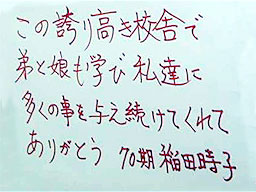 この誇り高き校舎で
弟と娘も学び私達に
多くの事を与え続けてくれて
ありがとう 70期 稲田時子